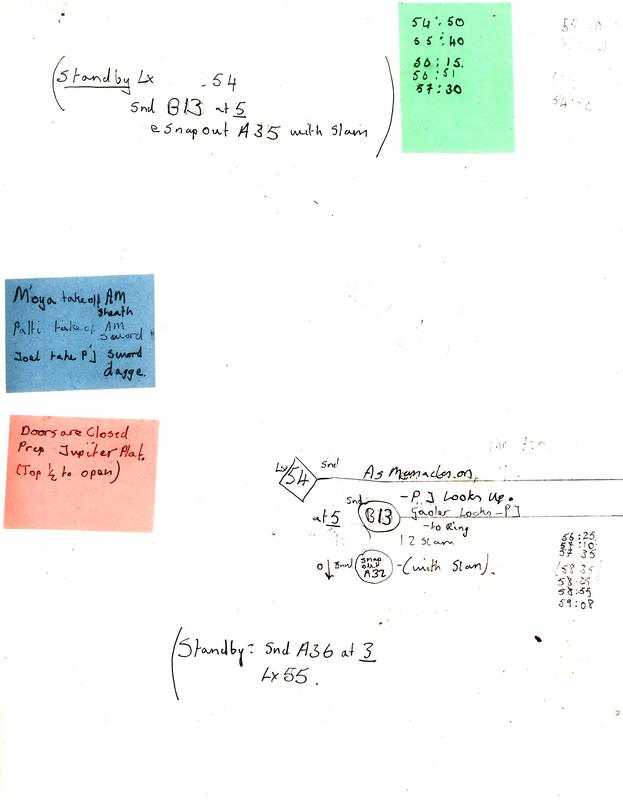 54:50
55:40
56:15.
56:51
57:30
(Standby Lx .54
Snd B13 at 5
e Snap out A35 with Slam)
Moya take off AM
Sheath
Patti take of AM
Sword
Joel take PJ Sword
dagge.
Doors are Closed
Prep Jupiter Plat.
(Top ½ to open)
Lx 54 Snd As Manacles on,
- P.J Looks Up.
at 5 Snd B13 Gaoler Locks - PJ
- to Ring
12 Slam
0 ↓ Snd Snap out A32 - (with Slam).
56:25
57:10
57 35
(58 35)
58:25
58:55
59:08
(Standby: Snd A36 at 3
Lx 55.